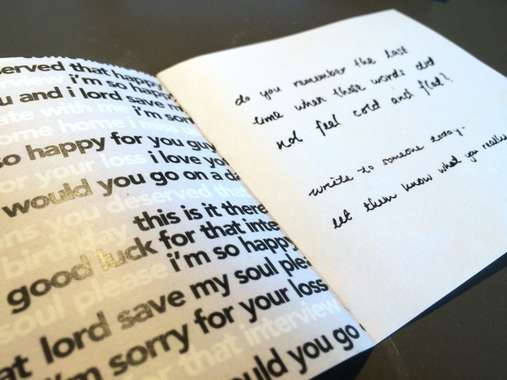 served that happy
i'm so happy
u and i lord save m
i'm sorr
ome home i was
so happy for you guy
for your loss i love yo
would you go on a da
you deserved that
this is it there
birthday
good luck for that inte
i'm so happy
soul please
at lord save my soul plea
i'm sorry for your loss
for that interview
ould you go
do you remember the last
time when their words did
not feel cold and flat?
write to someone today.
let them know what you really